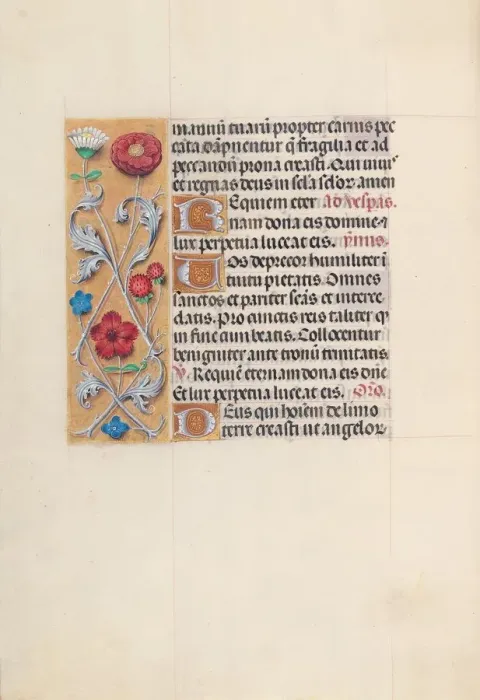 manuū tuarū propter carnis pec
cata dāpnentur q̄ fragilia et ad
peccandū prona creasti. Qui viuis
et regnas deus in sc̄la sc̄lor̄ amen
Requiem eter Ad vespas.
nam dona eis domine. ⁊
lux perpetua luceat eis. ymnis.
Uos deprecor humiliter ī
tuitu pietatis. Omnes
sanctos et pariter scās et interce
datis. Pro cunctis reis taliter q̄
in fine cum beatis. Collocentur
benigniter ante tronū trinitatis.
℣. Requiē eternam dona eis dn̄e
Et lux perpetua luceat eis. Or̄o.
Deus qui hoīem de limo
terre creasti ut angelor